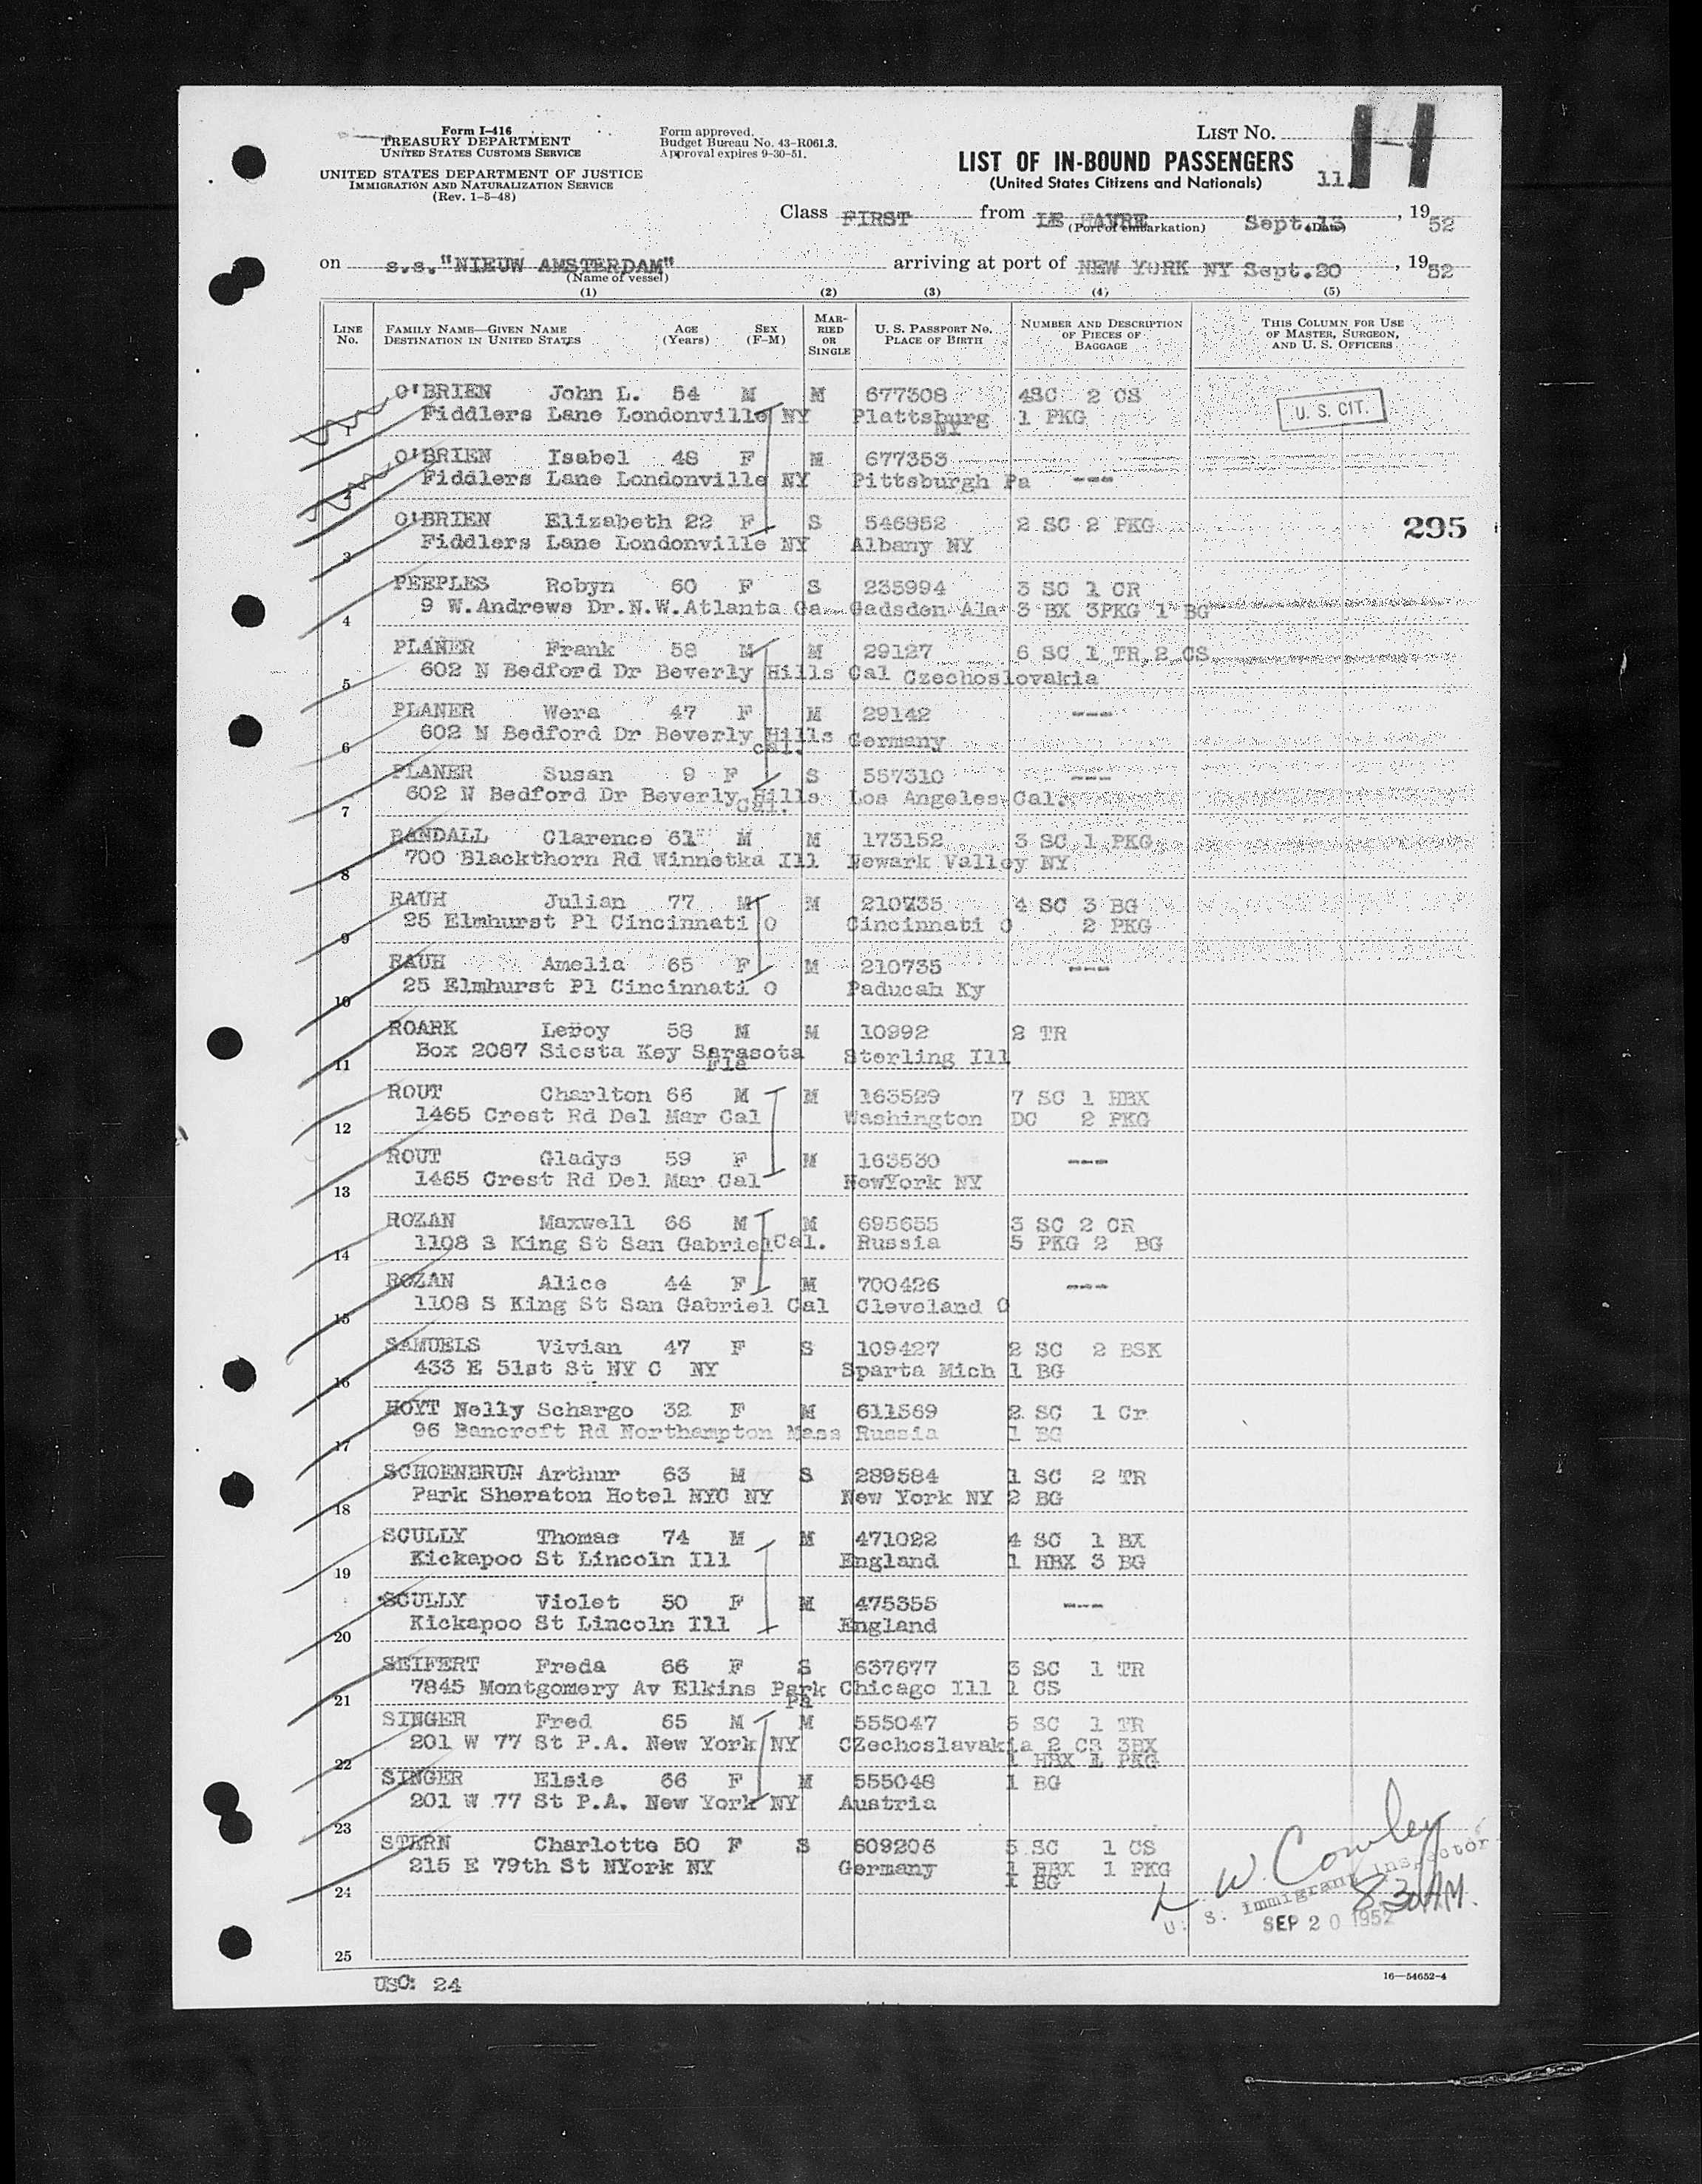 Form I-416
TREASURY DEPARTMENT
UNITED STATES CUSTOMS SERVICE
UNITED STATES DEPARTMENT OF JUSTICE
IMMIGRATION AND NATURALIZATION SERVICE
(Rev. 1-5-48)
Form approved.
Budget Bureau No. 43-R061.3.
Approval expires 9-30-51.
LIST NO.
11
LIST OF IN-BOUND PASSENGERS
(United States Citizens and Nationals)
11.
Class FIRST from LE HAVRE Sept.13, 1952
(Port of embarkation) (Date)
on s.s."NIEUW AMSTERDAM" arriving at port of NEW YORK NY Sept.20, 1952
(Name of vessel)
(1) (2) (3) (4) (5)
LINE No. FAMILY NAME—GIVEN NAME DESTINATION IN UNITED STATES AGE (Years) SEX (F-M) MARRIED OR SINGLE U. S. PASSPORT No. PLACE OF BIRTH NUMBER AND DESCRIPTION OF PIECES OF BAGGAGE THIS COLUMN FOR USE OF MASTER, SURGEON, AND U. S. OFFICERS
O'BRIEN John L. 54 M M 677308 4SC 2 CS
Fiddlers Lane Londonville NY Plattsburg NY 1 PKG
U. S. CIT.
O'BRIEN Isabel 48 F M 677353
2 Fiddlers Lane Londonville NY Pittsburgh Pa ---
O'BRIEN Elizabeth 22 F S 546852 2 SC 2 PKG 295
3 Fiddlers Lane Londonville NY Albany NY
PEEPLES Robyn 60 F S 235994 3 SC 1 CR
4 9 W.Andrews Dr.N.W.Atlanta Ga Gadsden Ala 3 BX 3PKG 1 BG
PLANER Frank 58 M M 29127 6 SC 1 TR 2 CS
5 602 N Bedford Dr Beverly Hills Cal Czechoslovakia
PLANER Wera 47 F M 29142 ---
6 602 N Bedford Dr Beverly Hills Cal. Germany
PLANER Susan 9 F S 557310 ---
7 602 N Bedford Dr Beverly Hills Cal. Los Angeles Cal.
RANDALL Clarence 61 M M 173152 3 SC 1 PKG
8 700 Blackthorn Rd Winnetka Ill Newark Valley NY
RAUH Julian 77 M M 210735 4 SC 3 BG
9 25 Elmhurst Pl Cincinnati O Cincinnati O 2 PKG
RAUH Amelia 65 F M 210735 ---
10 25 Elmhurst Pl Cincinnati O Paducah Ky
ROARK LeRoy 58 M M 10992 2 TR
11 Box 2087 Siesta Key Sarasota Fla Sterling Ill
ROUT Charlton 66 M M 163529 7 SC 1 HBX
12 1465 Crest Rd Del Mar Cal Washington DC 2 PKG
ROUT Gladys 59 F M 163530 ---
13 1465 Crest Rd Del Mar Cal NewYork NY
ROZAN Maxwell 66 M M 695655 3 SC 2 CR
14 1108 S King St San Gabriel Cal. Russia 5 PKG 2 BG
ROZAN Alice 44 F M 700426 ---
15 1108 S King St San Gabriel Cal Cleveland O
SAMUELS Vivian 47 F S 109427 2 SC 2 BSK
16 433 E 51st St NY C NY Sparta Mich 1 BG
HOYT Nelly Schargo 32 F M 611569 2 SC 1 Cr
17 96 Bancroft Rd Northampton Mass Russia 1 BG
SCHOENBRUN Arthur 63 M S 289584 1 SC 2 TR
18 Park Sheraton Hotel NYC NY New York NY 2 BG
SCULLY Thomas 74 M M 471022 4 SC 1 BX
19 Kickapoo St Lincoln Ill England 1 HBX 3 BG
SCULLY Violet 50 F M 475355 ---
20 Kickapoo St Lincoln Ill England
SEIFERT Freda 66 F S 637677 3 SC 1 TR
21 7845 Montgomery Av Elkins Park Pa Chicago Ill 1 CS
SINGER Fred 65 M M 555047 5 SC 1 TR
201 W 77 St P.A. New York NY CZechoslavakia 2 CS 3BX
22 1 HBX 1 PKG
SINGER Elsie 66 F M 555048 1 BG
201 W 77 St P.A. New York NY Austria
23
STERN Charlotte 50 F S 609206 5 SC 1 CS
215 E 79th St NYork NY Germany 1 HBX 1 PKG
24 1 BG
W. Conley
U. S. Immigrant Inspector
8 30 AM.
SEP 20 1952
25
USC: 24
16—54652-4